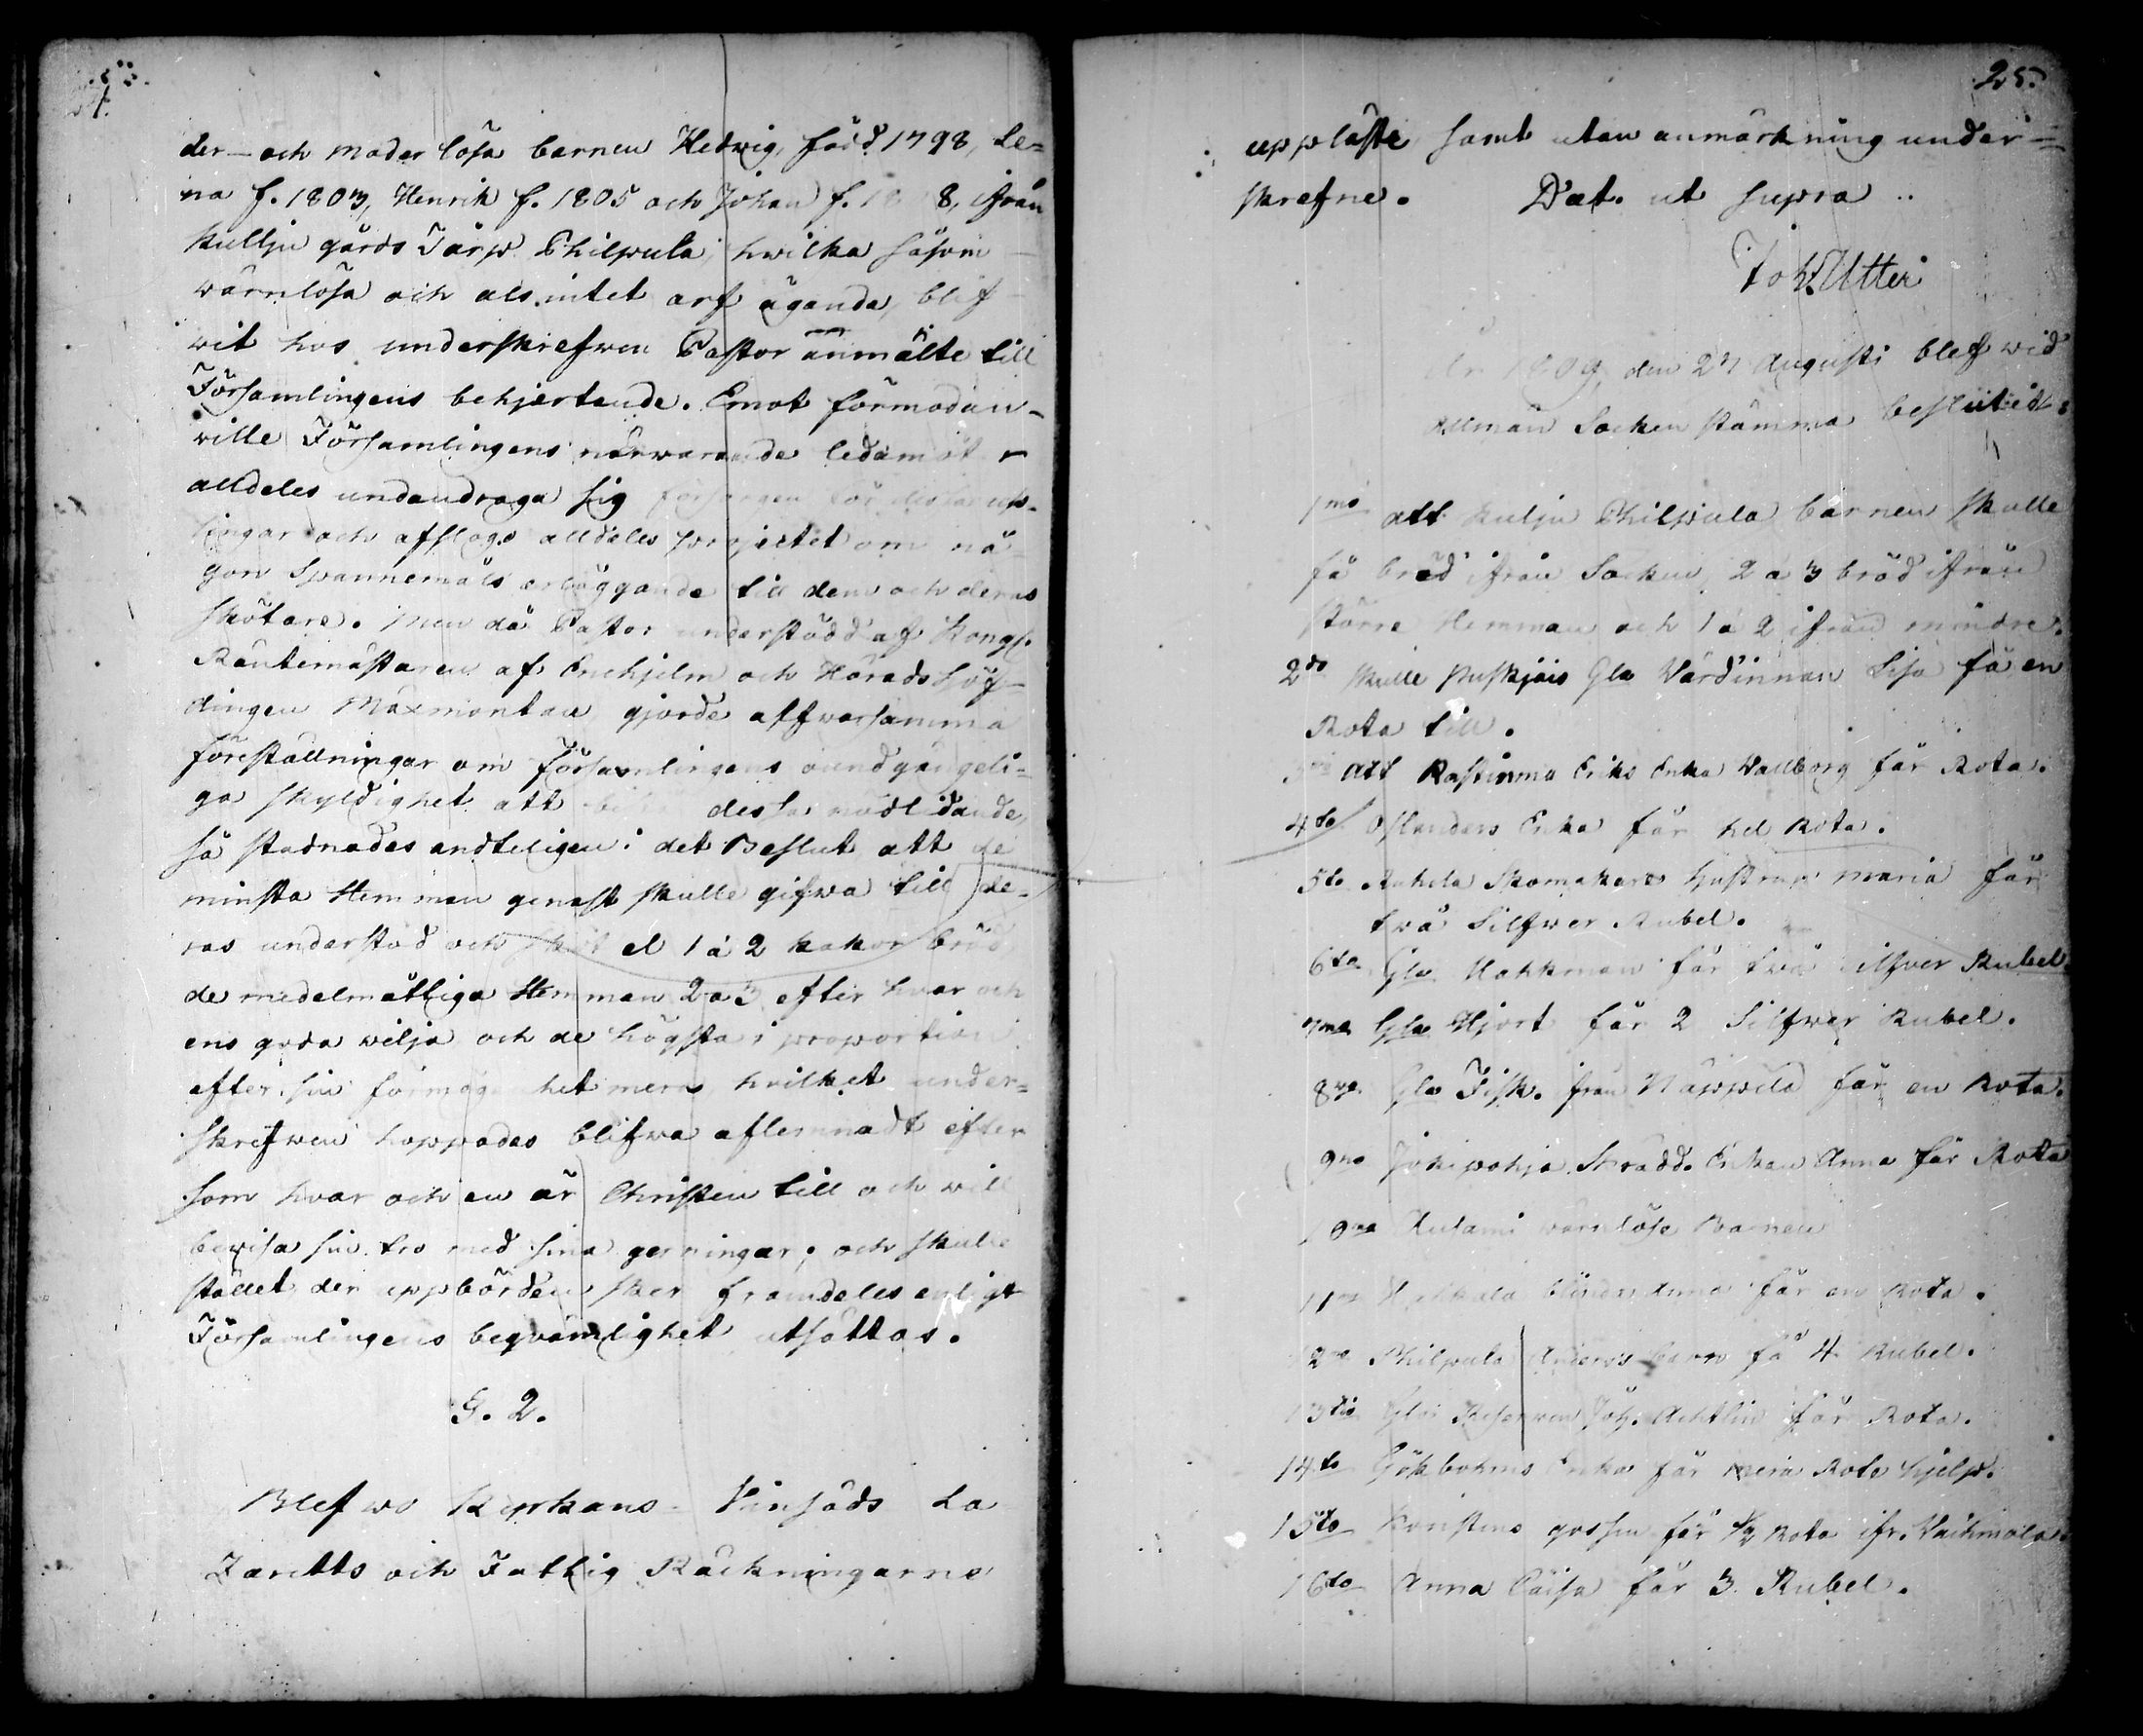 24.
der- och moderlösa barnen Hedvig, född 1798, Le=
na f. 1803, Henrik f. 1805 och Johan f. 18 8, ifrån
Kullju gårds Torp Philpula, hwilka såsom
wärnlösa och als intet arf ägande, blif-
wit hos underskrefwen Pastor anmälte till
Församlingens behjertande. Emot förmodan-
wille Församlingens närwarande ledamöter
alldeles undandraga sig försorgen för dessa usk-
lingar och afslogs alldeles projectet om nå-
gon Spannemåls erläggande till dem och deras
skötare. Men då Pastor understödd af Kongl.
Räntemästaren af Enehjelm och Häradshöf-
dingen Maxmontan, gjorde alfwarsamma
föreställningar om Församlingens oundgängeli=
ga skyldighet att dessa nödlidande,
så stadnades andteligen i det Beslut, att de
minsta Hemman genast skulle gifwa till de-
ras understöd och sköt el 1 à 2 kakor bröd
de medelmåttiga Hemman 2 a 3 efter hwar och
ens goda wilja och de högsta i proportion
efter sin förmögenhet mera hvilket under=
skrefwen hoppades blifwa aflemnadt efter
som hvar och en är Christen till och will
bewisa sin tro med sina gerningar; och skulle
stället der uppbörden sker framdeles enligt
Församlingens beqvämlighet utsättas.
§. 2.
Blefwo Kyrkans- Vinsäds La
Zaretts och Fattig Räckningarne
25.
uppläste, samt utan anmärkning under=
skrefne. Dat. ut supra ..
Joh. Utter
År 1809, den 27 Augusti blef wid
allmän Sockenstämma beslutit:
1mo att Kulju Philpula barnen skulle
få bröd ifrån Socken, 2 a 3 bröd ifrån
större Hemman och 1 à 2 ifrån mindre.
2do skulle Gla Wärdinnan Lisa få en
Rota till.
att Eriks Enka Wallborg får Rota.
4to Oslanders Enka får hel Rota.
5to Skomakares hustrun Maria får
två Silfwer Rubel.
6to Gla Hakkman får två Silfver Rubel
7mo Gla Hjort får 2 Silfwer Rubel.
8vo Gla Fisk. från Näppilä får en Rota.
9no Jokipohja Skradd. Enkan Anna får Rota
10mo wärnlösa Barnen
11mo blinda Anna får en Rota.
12mo Philpula Anders barn få 4 Rubel.
13tio Gla Joh. får Rota.
14to Gökbohms Enka får mera Rote hjelp.
15to gossen får 1/2 Rota ifr. Vaihmala.
16to Anna Caisa får 3 Rubel.